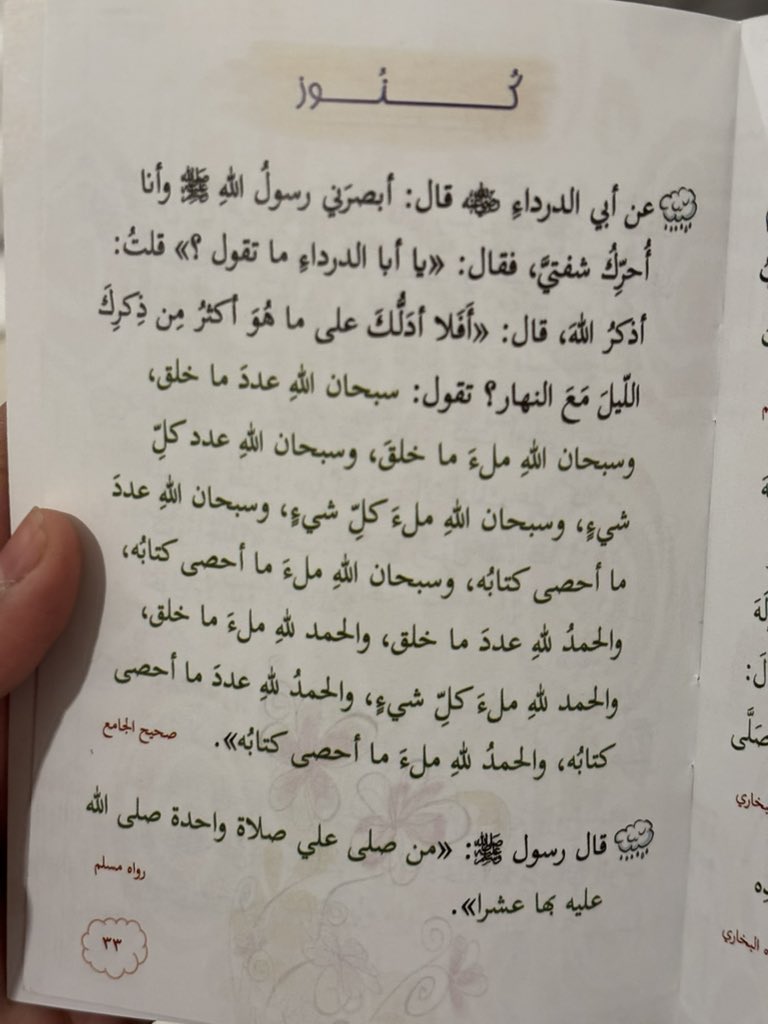 كُـنُـوز
عن أبي الدرداءِ رضي الله عنه قال: أبصرَني رسولُ اللهِ ﷺ وأنا
أُحرِّكُ شفتيَّ، فقال: «يا أبا الدرداءِ ما تقول ؟» قلتُ:
أذكرُ اللهَ، قال: «أَفَلا أدَلُّكَ على ما هُوَ أكثرُ مِن ذِكرِكَ
اللّيلَ مَعَ النهار؟ تقول: سبحان اللهِ عددَ ما خلق،
وسبحان اللهِ ملءَ ما خلقَ، وسبحان اللهِ عدد كلِّ
شيءٍ، وسبحان اللهِ ملءَ كلِّ شيءٍ، وسبحان اللهِ عددَ
ما أحصى كتابُه، وسبحان اللهِ ملءَ ما أحصى كتابُه،
والحمدُ للهِ عددَ ما خلق، والحمد للهِ ملءَ ما خلق،
والحمد للهِ ملءَ كلِّ شيءٍ، والحمدُ للهِ عددَ ما أحصى
كتابُه، والحمدُ للهِ ملءَ ما أحصى كتابُه».
صحيح الجامع
قال رسول ﷺ: «من صلى علي صلاة واحدة صلى الله
عليه بها عشرا».
رواه مسلم
٣٣